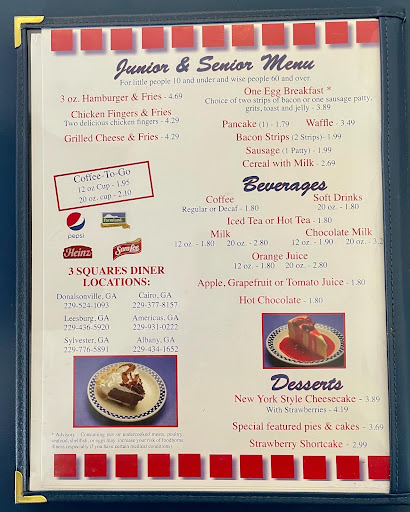 Junior & Senior Menu
For little people 10 and under and wise people 60 and over.
3 oz. Hamburger & Fries - 4.69
Chicken Fingers & Fries
Two delicious chicken fingers - 4.29
Grilled Cheese & Fries - 4.29
One Egg Breakfast *
Choice of two strips of bacon or one sausage patty, grits, toast and jelly - 3.89
Pancake (1) - 1.79 Waffle - 3.49
Bacon Strips (2 Strips)- 1.99
Sausage (1 Patty) - 1.99
Cereal with Milk - 2.69
Coffee-To-Go
12 oz Cup - 1.95
20 oz. cup - 2.10
pepsi
Heinz
Sara Lee
3 SQUARES DINER
LOCATIONS:
Donalsonville, GA Cairo, GA
229-524-1093 229-377-8157
Leesburg, GA Americas, GA
229-436-5920 229-931-0222
Sylvester, GA Albany, GA
229-776-5891 229-434-1652
* Advisory - Consuming raw or undercooked meats, poultry,
seafood, shellfish, or eggs may increase your risk of foodborne
illness (especially if you have certain medical conditions)
Beverages
Coffee Soft Drinks
Regular or Decaf - 1.80 20 oz. - 1.80
Iced Tea or Hot Tea - 1.80
Milk Chocolate Milk
12 oz. - 1.80 20 oz. - 2.80 12 oz. - 1.90 20 oz. - 3.2
Orange Juice
12 oz. - 1.80 20 oz. - 2.80
Apple, Grapefruit or Tomato Juice - 1.80
Hot Chocolate - 1.80
Desserts
New York Style Cheesecake - 3.89
With Strawberries - 4.19
Special featured pies & cakes - 3.69
Strawberry Shortcake - 2.99